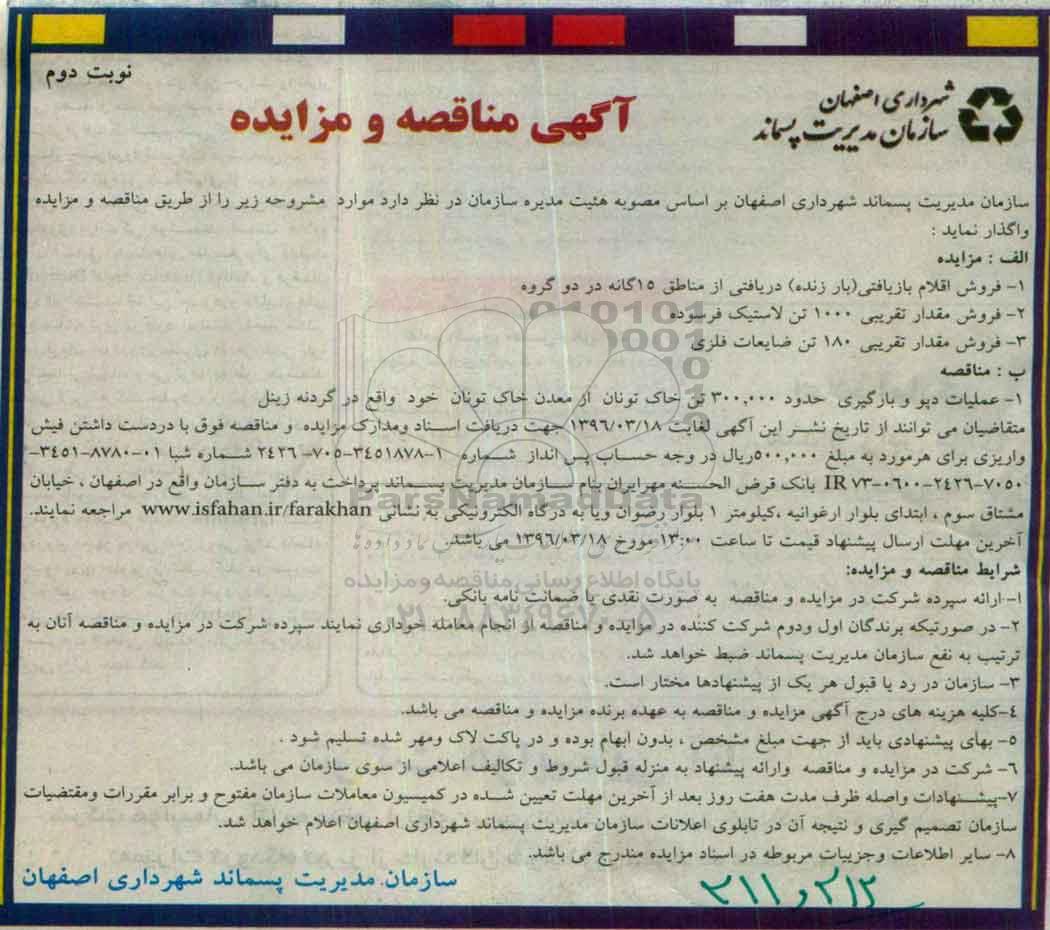 نوبت دوم
شهرداری اصفهان
سازمان مدیریت پسماند
آگهی مناقصه و مزایده
سازمان مدیریت پسماند شهرداری اصفهان بر اساس مصوبه هئیت مدیره سازمان در نظر دارد موارد مشروحه زیر را از طریق مناقصه و مزایده
واگذار نماید :
الف : مزایده
۱- فروش اقلام بازیافتی(بار زنده) دریافتی از مناطق ۱۵گانه در دو گروه
۲- فروش مقدار تقریبی ۱۰۰۰ تن لاستیک فرسوده
۳- فروش مقدار تقریبی ۱۸۰ تن ضایعات فلزی
ب : مناقصه
۱- عملیات دپو و بارگیری حدود ۳۰۰,۰۰۰ تن خاک تونان از معدن خاک تونان خود واقع در گردنه زینل
متقاضیان می توانند از تاریخ نشر این آگهی لغایت ۱۳۹۶/۰۳/۱۸ جهت دریافت اسناد ومدارک مزایده و مناقصه فوق با دردست داشتن فیش
واریزی برای هرمورد به مبلغ ۵۰۰,۰۰۰ریال در وجه حساب پس انداز شماره ۱-۳۴۵۱۸۷۸-۷۰۵-۲۴۲۶ شماره شبا ۰۱-۸۷۸۰-۳۴۵۱-
۷۰۵۰-۲۴۲۶-۰۶۰۰-۷۳ IR بانک قرض الحسنه مهرایران بنام سازمان مدیریت پسماند پرداخت به دفتر سازمان واقع در اصفهان ، خیابان
مشتاق سوم ، ابتدای بلوار ارغوانیه ،کیلومتر ۱ بلوار رضوان ویا به درگاه الکترونیکی به نشانی www.isfahan.ir/farakhan مراجعه نمایند.
آخرین مهلت ارسال پیشنهاد قیمت تا ساعت ۱۳:۰۰ مورخ ۱۳۹۶/۰۳/۱۸ می باشد.
شرایط مناقصه و مزایده:
۱-ارائه سپرده شرکت در مزایده و مناقصه به صورت نقدی یا ضمانت نامه بانکی.
۲- در صورتیکه برندگان اول ودوم شرکت کننده در مزایده و مناقصه از انجام معامله خوداری نمایند سپرده شرکت در مزایده و مناقصه آنان به
ترتیب به نفع سازمان مدیریت پسماند ضبط خواهد شد.
۳- سازمان در رد یا قبول هر یک از پیشنهادها مختار است.
۴-کلیه هزینه های درج آگهی مزایده و مناقصه به عهده برنده مزایده و مناقصه می باشد.
۵- بهأی پیشنهادی باید از جهت مبلغ مشخص ، بدون ابهام بوده و در پاکت لاک ومهر شده تسلیم شود .
۶- شرکت در مزایده و مناقصه وارائه پیشنهاد به منزله قبول شروط و تکالیف اعلامی از سوی سازمان می باشد.
۷-پیشنهادات واصله ظرف مدت هفت روز بعد از آخرین مهلت تعیین شده در کمیسیون معاملات سازمان مفتوح و برابر مقررات ومقتضیات
سازمان تصمیم گیری و نتیجه آن در تابلوی اعلانات سازمان مدیریت پسماند شهرداری اصفهان اعلام خواهد شد.
۸- سایر اطلاعات وجزییات مربوطه در اسناد مزایده مندرج می باشد.
سازمان مدیریت پسماند شهرداری اصفهان
ParsNamadData
پایگاه اطلاع رسانی مناقصه ومزایده